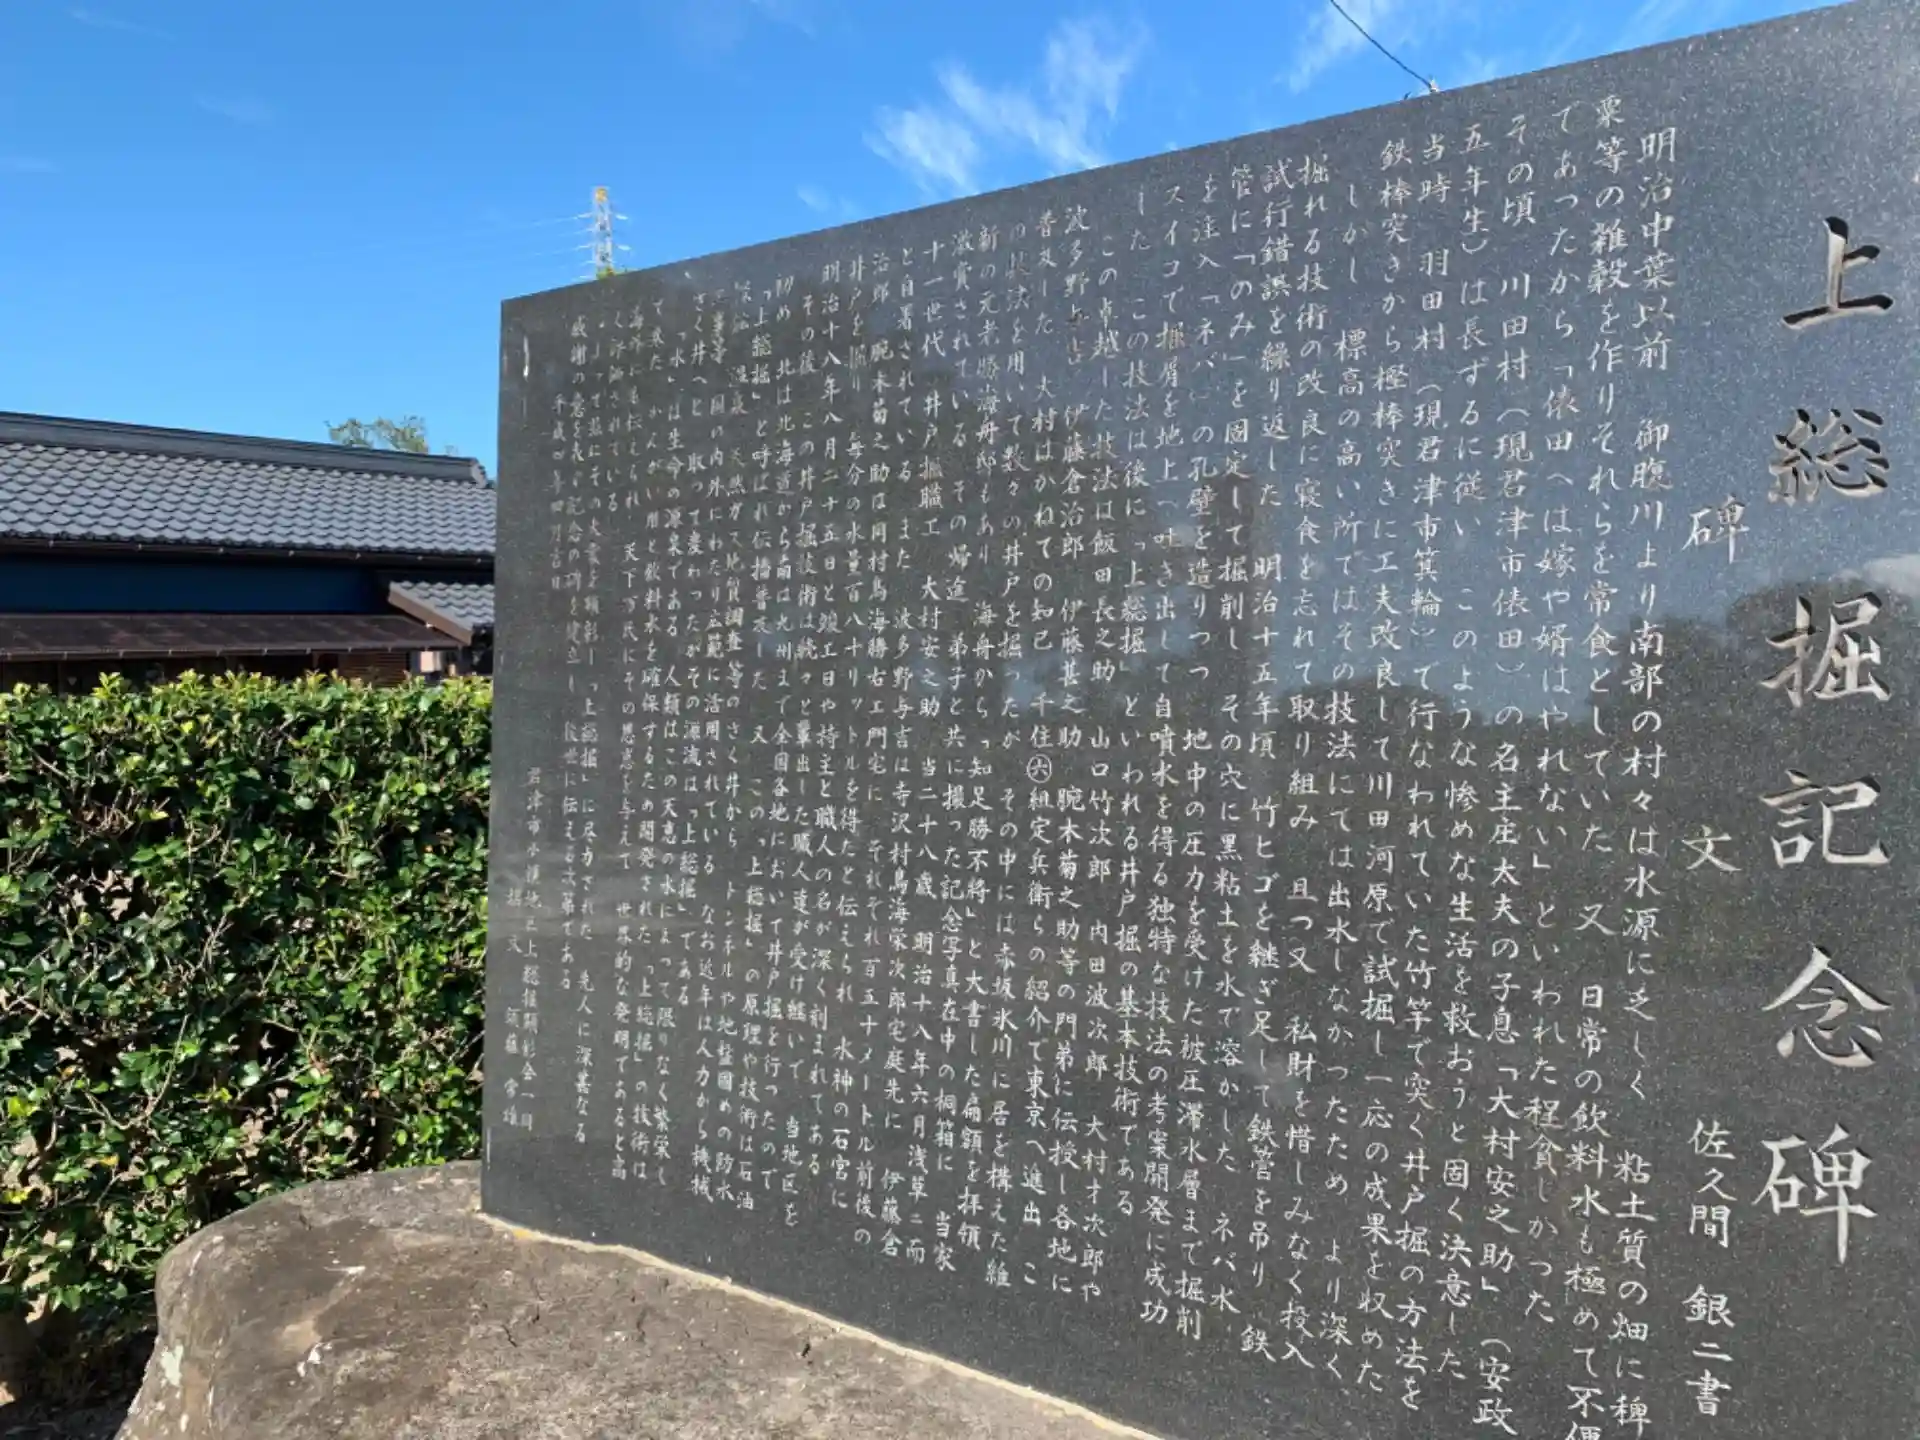 上総掘記念碑
碑　文　佐久間　銀二書
明治中葉以前　御腹川より南部の村々は水源に乏しく　粘土質の畑に稗
粟等の雑穀を作りそれらを常食としていた　又　日常の飲料水も極めて不便
であったから「俵田へは嫁や婿はやれない」といわれた程貧しかった
その頃　川田村（現君津市俵田）の名主庄大夫の子息「大村安之助」（安政
五年生）は長ずるに従い　このような惨めな生活を救おうと固く決意した
当時　羽田村（現君津市箕輪）で行なわれていた竹竿で突く井戸掘の方法を
鉄棒突きから樫棒突きに工夫改良して川田河原で試掘し一応の成果を収めた
しかし　標高の高い所ではその技法にては出水しなかったため　より深く
掘れる技術の改良に寝食を忘れて取り組み　且つ又　私財を惜しみなく投入
試行錯誤を繰り返した　明治十五年頃　竹ヒゴを継ぎ足して鉄管を吊り　鉄
管に「のみ」を固定して掘削し　その穴に黒粘土を水で溶かした　ネバ水
を注入「ネバ」の孔壁を造りつつ　地中の圧力を受けた被圧滞水層まで掘削
スイコで掘屑を地上へ吐き出して自噴水を得る独特な技法の考案開発に成功
した　この技法は後に「上総掘」といわれる井戸掘の基本技術である
この卓越した技法は飯田長之助　山口竹次郎　内田波次郎　大村才次郎や
波多野与吉　伊藤倉治郎　伊藤甚之助　腕木菊之助等の門弟に伝授し各地に
普及した　大村はかねての知己　千住㊅組定兵衛らの紹介で東京へ進出　こ
の技法を用いて数々の井戸を掘ったが　その中には赤坂氷川に居を構えた維
新の元老勝海舟邸もあり　海舟から「知足勝不将」と大書した扁額を拝領
激賞されている　その帰途　弟子と共に撮った記念写真在中の桐箱に　当家
十一世代　井戸掘職工　大村安之助　当二十八歳　明治十八年六月浅草ニ而
と自署されている　また　波多野与吉は寺沢村鳥海栄次郎宅庭先に　伊藤倉
治郎　腕木菊之助は同村鳥海勝右エ門宅に　それぞれ百五十メートル前後の
井戸を掘り　毎分の水量百八十リットルを得たと伝えられ　水神の石宮に
明治十八年八月二十五日と竣工日や持主と職人の名が深く刻まれてある
その後　この井戸掘技術は続々と輩出した職人達が受け継いで　当地区を
初め　北は北海道から南は九州まで全国各地において井戸掘を行ったので
「上総掘」と呼ばれ伝播普及した　又　この「上総掘」の原理や技術は石油
温泉　天然ガス　地質調査等のさく井から　トンネルや地盤固めの防水
工事等　国の内外にわたり広範に活用されている　なお近年は人力から機械
さく井へと　取って変わったがその源流は「上総掘」である
「水」は生命の源泉である　人類はこの天恵の水によって限りなく繁栄し
て来た　かんがい用と飲料水を確保するため開発された「上総掘」の技術は
海外にも伝えられ　天下万民にその恩恵を与えて　世界的な発明であると高
く評価されている
よって茲にその大業を顕彰し「上総掘」に尽力された　先人に深甚なる
感謝の意を表し記念の碑を建立し　後世に伝える次第である
平成四年四月吉日
君津市小櫃地区上総掘顕彰会一同
撰文　須藤　常雄